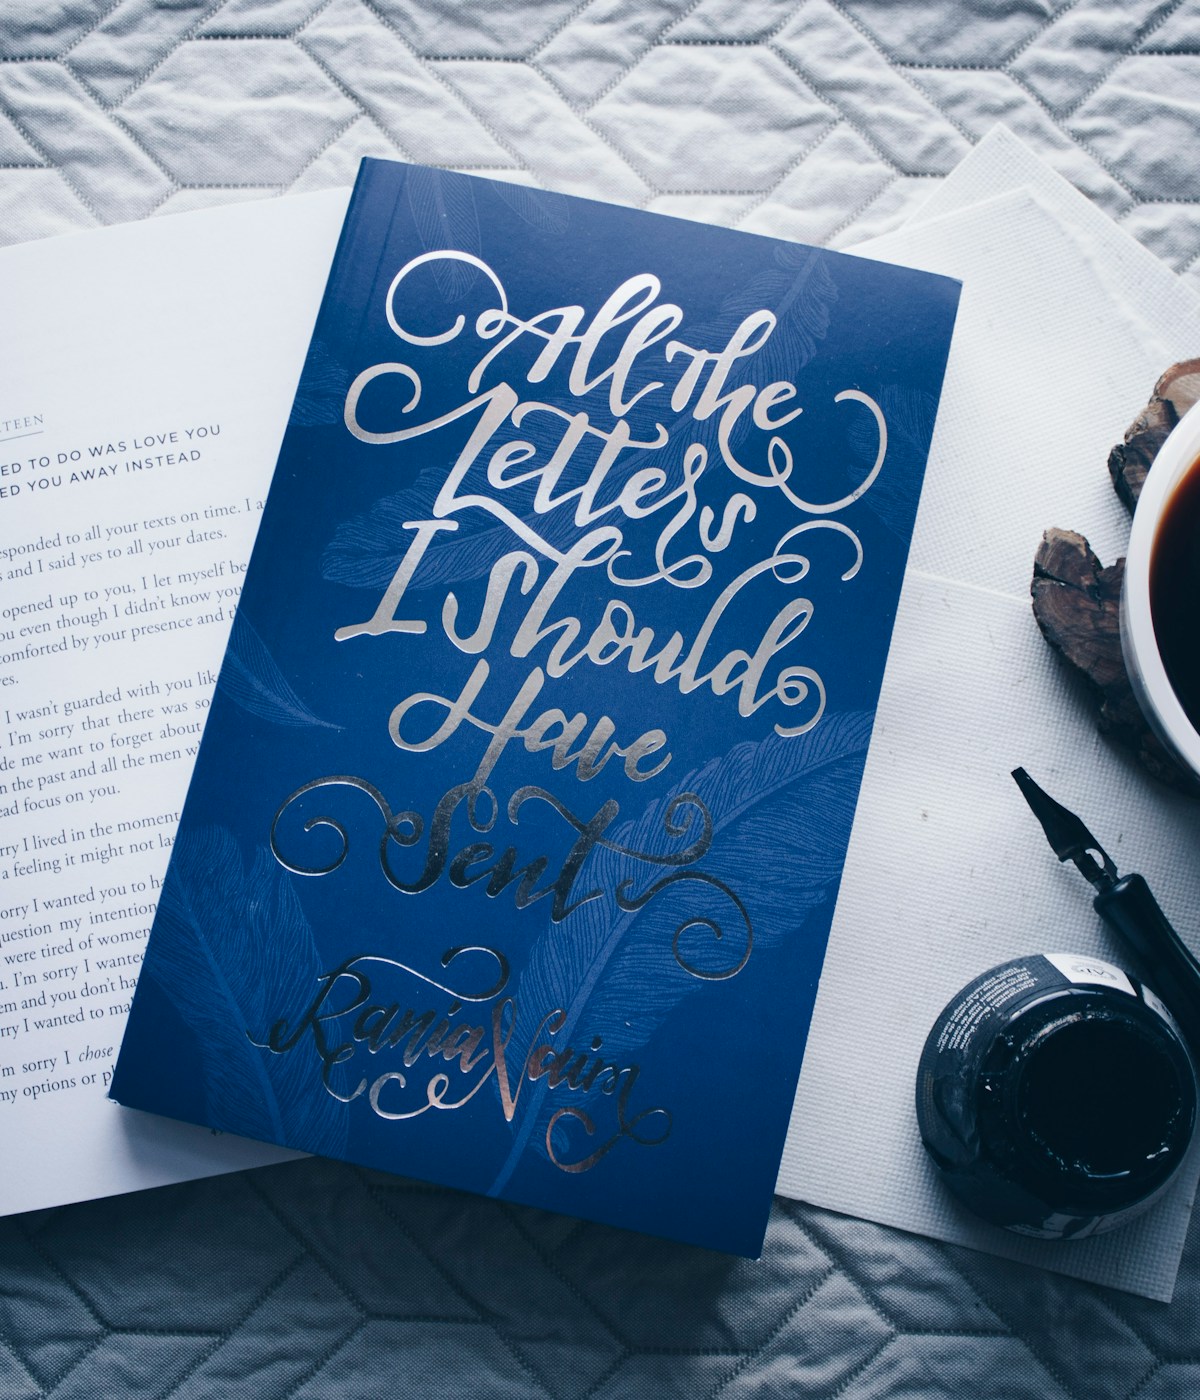 All The
Letters
I Should
Have
Sent
Rania Naim
TEEN
ED TO DO WAS LOVE YOU
ED YOU AWAY INSTEAD
esponded to all your texts on time. I a
s and I said yes to all your dates.
opened up to you, I let myself be
ou even though I didn't know you
comforted by your presence and th
es.
I wasn't guarded with you lik
. I'm sorry that there was so
de me want to forget about
n the past and all the men w
ead focus on you.
rry I lived in the moment
a feeling it might not las
orry I wanted you to ha
uestion my intention
were tired of women
. I'm sorry I wanted
em and you don't ha
rry I wanted to mak
'm sorry I chose
my options or pl